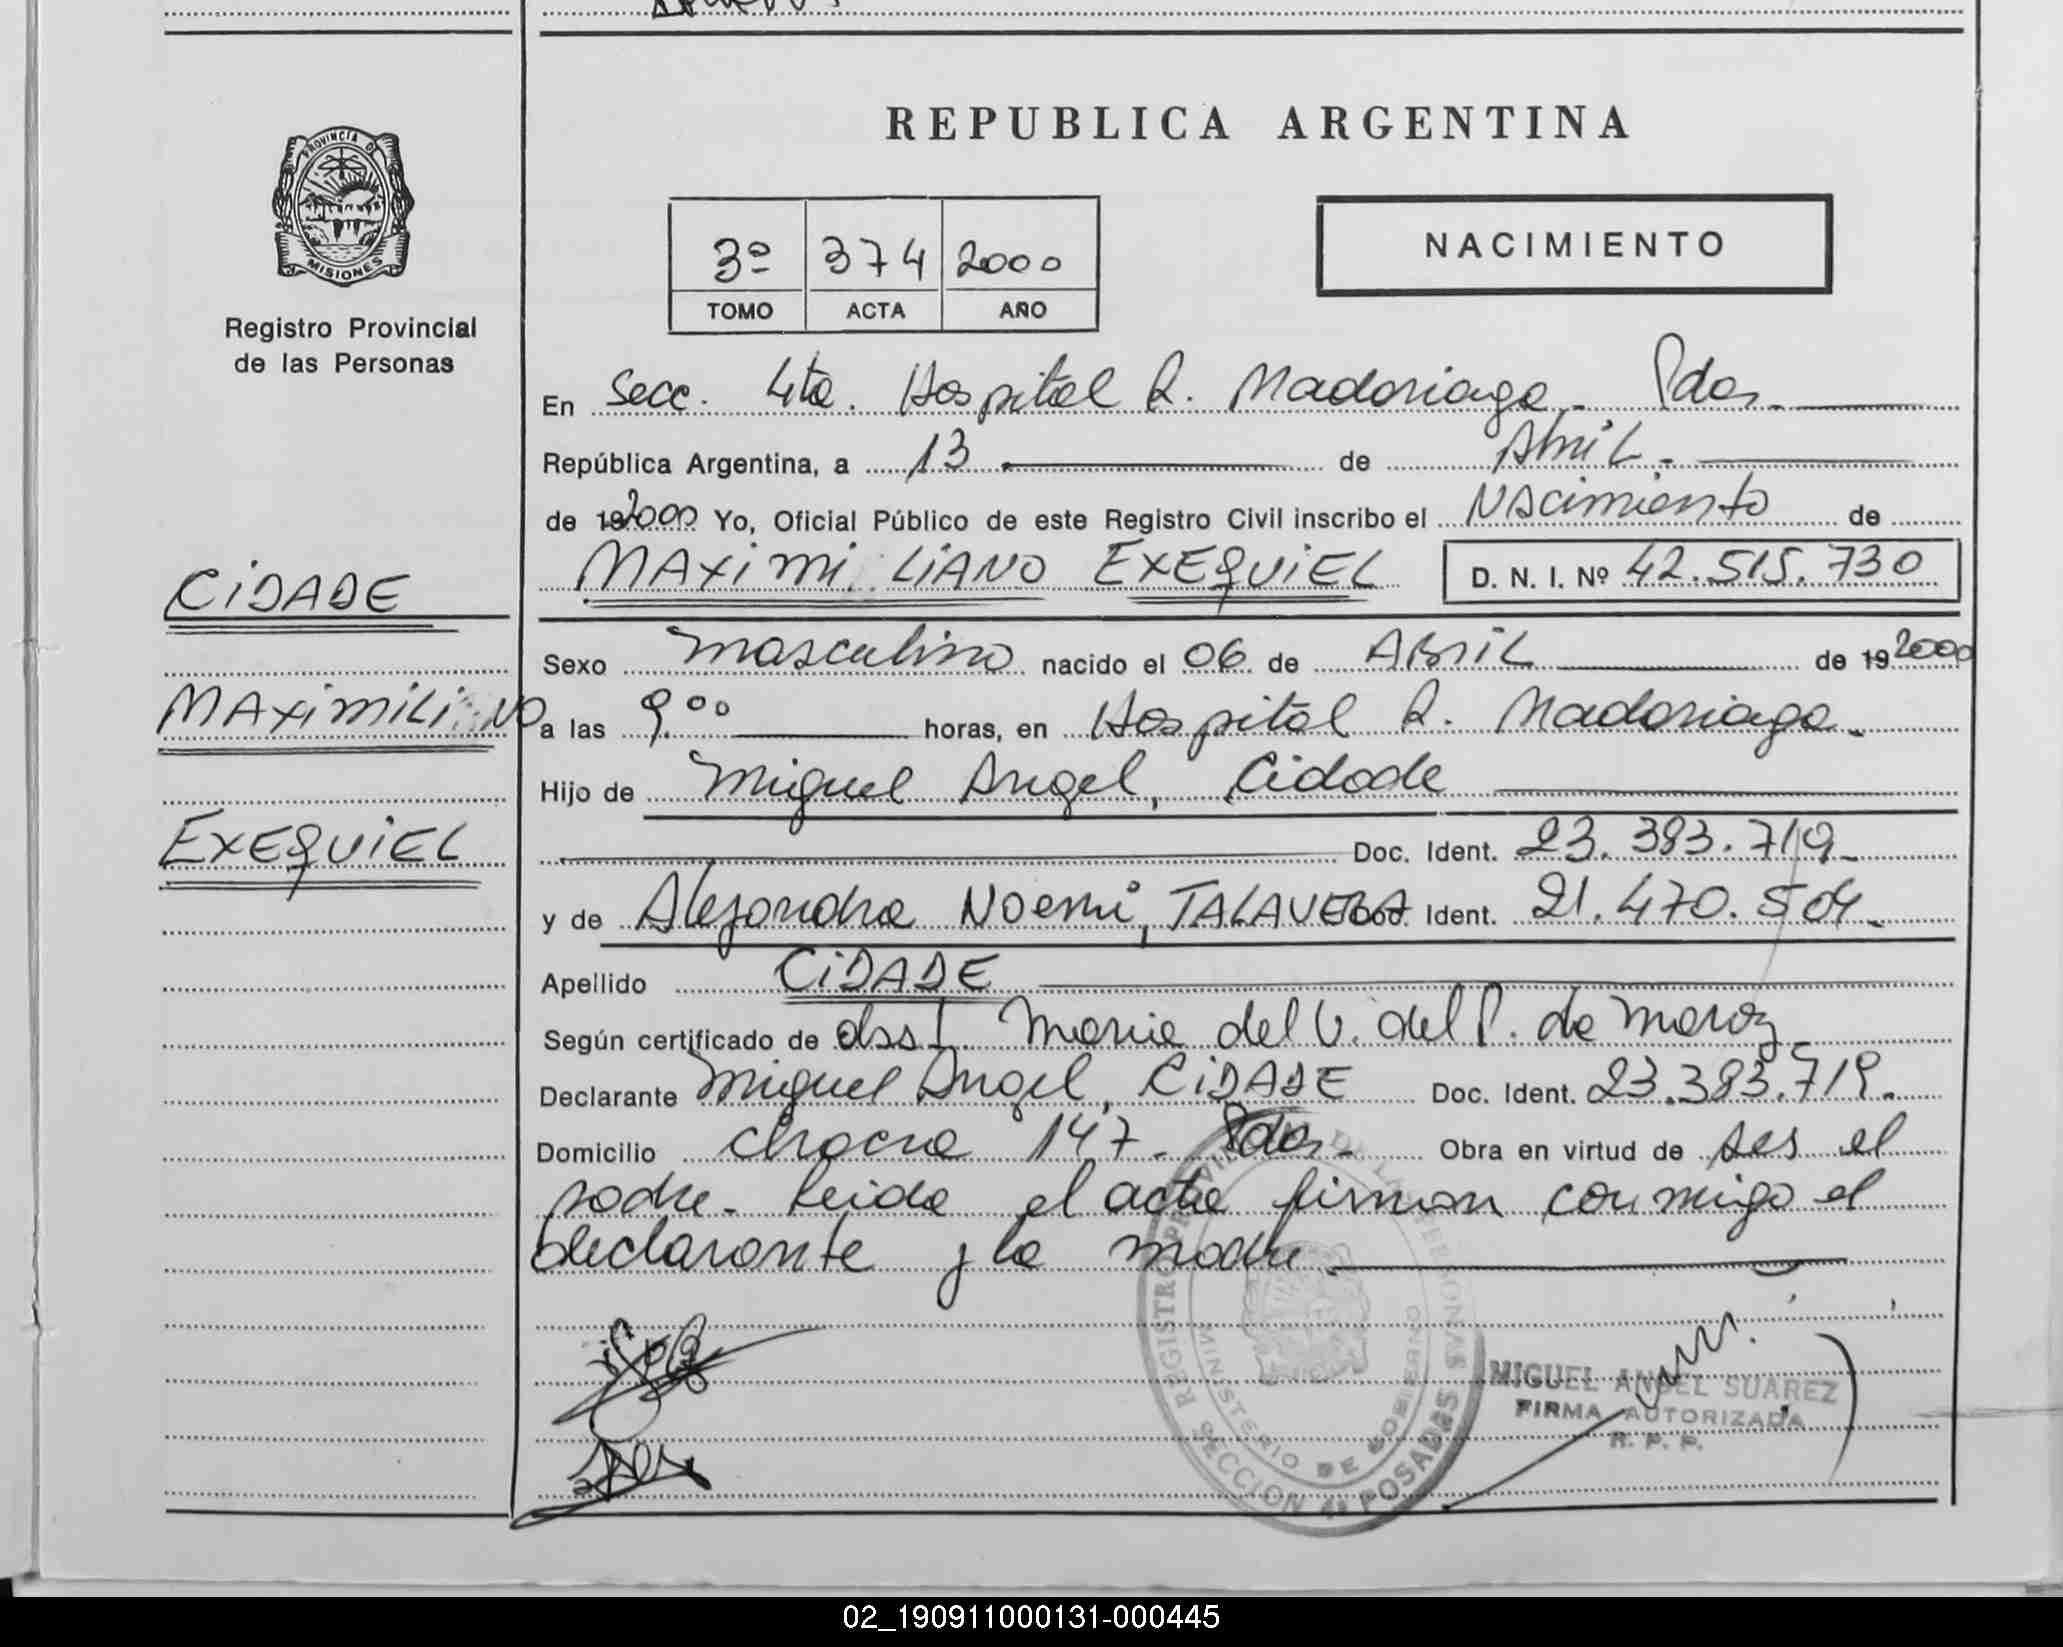 REPUBLICA ARGENTINA
PROVINCIA DE
MISIONES
Registro Provincial
de las Personas
3º 374 2000
TOMO ACTA AÑO
NACIMIENTO
En Secc. 4ta. Hospital R. Madariaga - Pdas.
República Argentina, a 13 de Abril.
de 192000 Yo, Oficial Público de este Registro Civil inscribo el Nacimiento de
MAXIMILIANO EXEQUIEL D. N. I. Nº 42.515.730
CIDADE
Sexo masculino nacido el 06 de ABRIL de 19 2000
MAXIMILI NO
a las 9.00 horas, en Hospital R. Madariaga.
Hijo de Miguel Angel, Cidade
EXEQUIEL
Doc. Ident. 23.383.719-
y de Alejandra Noemi, TALAVERA Doc. Ident. 21.470.504-
Apellido CIDADE
Según certificado de obst. Maria del V. del P. de Moroz
Declarante Miguel Angel, CIDADE Doc. Ident. 23.383.719.
Domicilio chacra 147- Pdas- Obra en virtud de ser el
padre- Leida el acta firman conmigo el
declarante y la madre-
REGISTRO PROVINCIAL DE LAS PERSONAS
MINISTERIO DE GOBIERNO
SECCION 4a POSADAS
MIGUEL ANGEL SUAREZ
FIRMA AUTORIZADA
R. P. P.
02_190911000131-000445